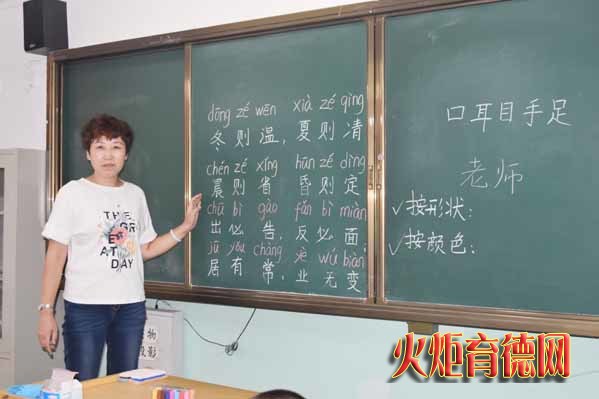 dōng zé wēn xià zé qìng
冬则温，夏则凊
chén zé xǐng hūn zé dìng
晨则省 昏则定
chū bì gào fǎn bì miàn
出必告，反必面，
jū yǒu cháng yè wú biàn
居有常，业无变
口耳目手足
老师
✓按形状：
✓按颜色：
THE
EAT
DAY
火炬育德网